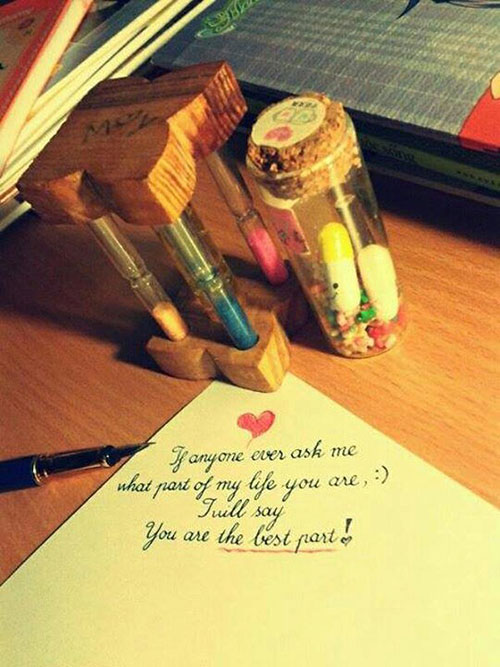 If anyone ever ask me
what part of my life you are, :)
I will say
You are the best part!